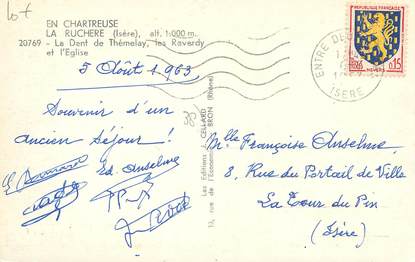 lot
EN CHARTREUSE
LA RUCHERE (Isère), alt. 1.000 m.
20769 - La Dent de Thémelay, les Raverdy
et l'Eglise
5 Août 1963
Souvenir d'un
ancien séjour !
Ed. Anselme
Les Editions J. CELLARD
BRON (Rhône)
REPUBLIQUE FRANÇAISE
0,15
ENTRE DE
ISERE
Mlle Françoise Anselme
8, Rue du Portail de Ville
La Tour du Pin
(Isère)